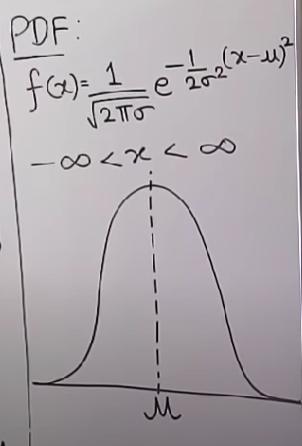 PDF:
f(x)= 1/√2πσ e^-1/2σ² (x-μ)²
-∞ < x < ∞
μ